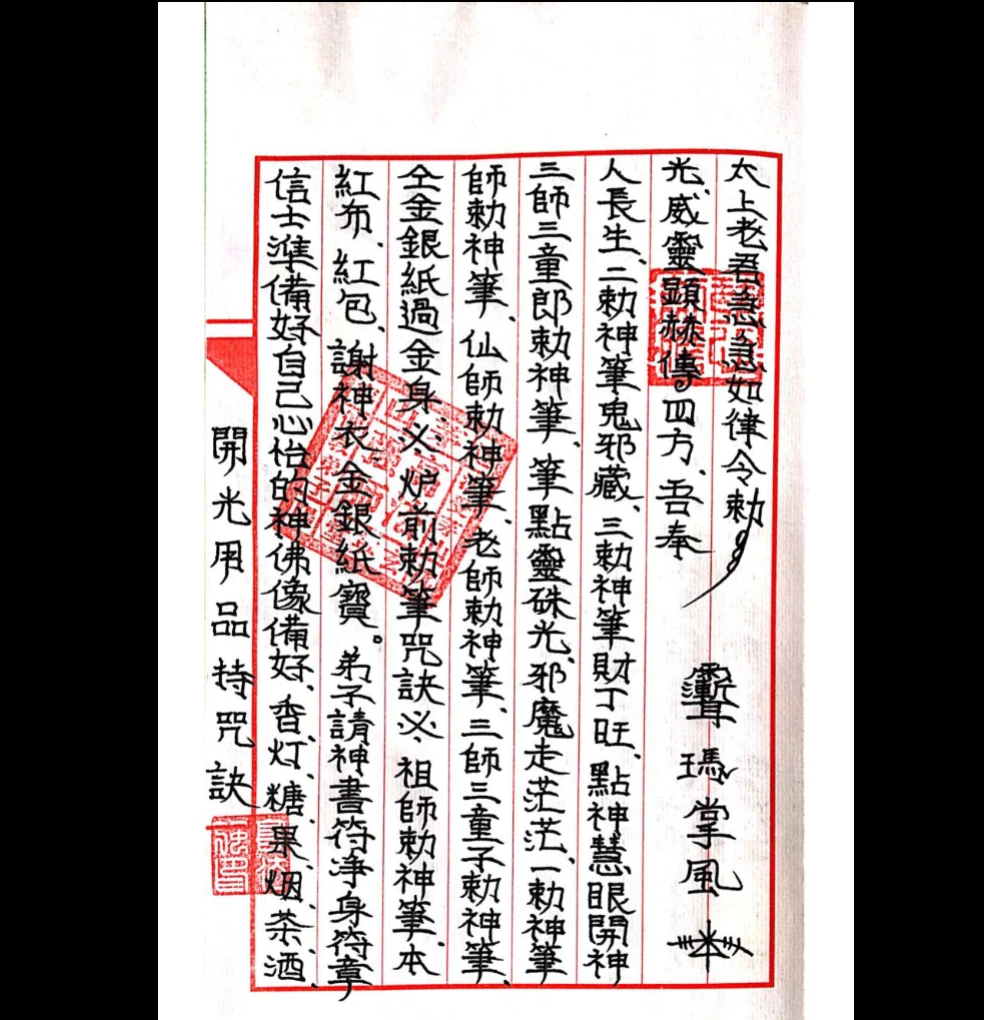 開光用品持咒訣
信士準備好自己心怡的神佛像備好、香灯、糖、果、烟、茶、酒、
紅布、紅包、謝神衣、金銀紙寶。弟子請神書符净身符章
仝金銀紙過金身、必、炉前勅筆咒訣必、祖師勅神筆、本
師勅神筆、仙師勅神筆、老師勅神筆、三師三童子勅神筆、
三師三童郎勅神筆、筆點靈硃光、邪魔走茫茫、一勅神筆
人長生、二勅神筆鬼邪藏、三勅神筆財丁旺、點神慧眼開神
光、威靈顕赫傳四方、吾奉
太上老君急急如律令勅
瑪掌風